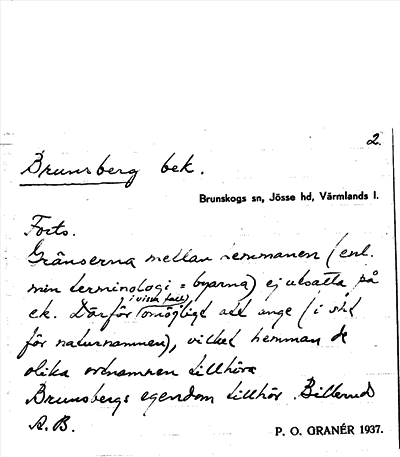 2.
Brunsberg bek.
Brunskogs sn, Jösse hd, Värmlands l.
Forts.
Gränserna mellan hemmanen (enl.
min terminologi = byarna) ej utsatta på
ek. Därför (i vissa fall) omöjligt att ange (i st f
för naturnamnen), vilket hemman de
olika ortnamnen tillhöra
Brunsbergs egendom tillhör Billerud
A.B.
P. O. GRANÉR 1937.